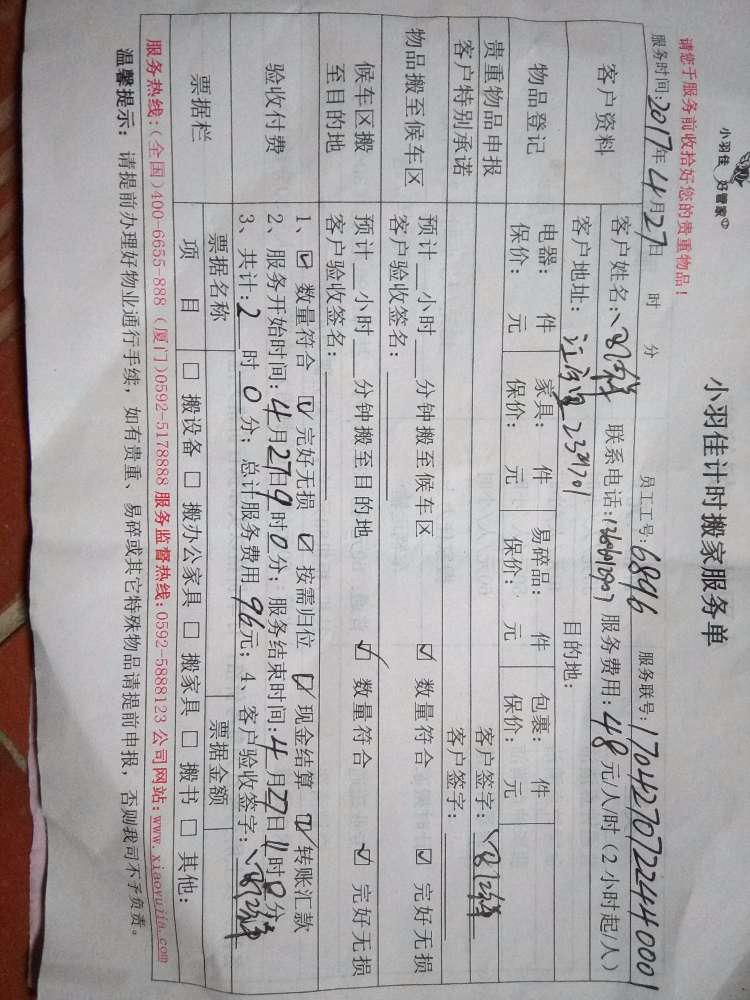 小羽佳 好管家
请您于服务前收拾好您的贵重物品！
小羽佳计时搬家服务单
服务时间：2017年4月27日 时 分 员工工号：6896 服务联号：1704270722440001
客户资料
客户姓名： 联系电话： 服务费用：48元/人/时（2小时起/人）
客户地址： 目的地：
物品登记
电器： 件 家具： 件 易碎品： 件 包裹： 件
保价： 元 保价： 元 保价： 元 保价： 元
贵重物品申报 客户签字：
客户特别承诺 客户签字：
物品搬至候车区
预计__小时__分钟搬至候车区 ☑ 数量符合 ☑ 完好无损
客户验收签名：
候车区搬至目的地
预计__小时__分钟搬至目的地 ☑ 数量符合 ☑ 完好无损
客户验收签名：
验收付费
1、☑ 数量符合 ☑ 完好无损 ☑ 按需归位 ☑ 现金结算 ☑ 转账汇款
2、服务开始时间：4月27日9时0分；服务结束时间：4月27日11时0分
3、共计：2时0分；总计服务费用96元；4、客户验收签字：
票据栏
票据名称 票据金额
项目 □ 搬设备 □ 搬办公家具 □ 搬家具 □ 搬书 □ 其他：
服务热线：（全国）400-6655-888（厦门）0592-5178888 服务监督热线：0592-5888123 公司网站：www.xiaoyujia.com
温馨提示：请提前办理好物业通行手续，如有贵重、易碎或其它特殊物品请提前申报，否则我司不予负责。